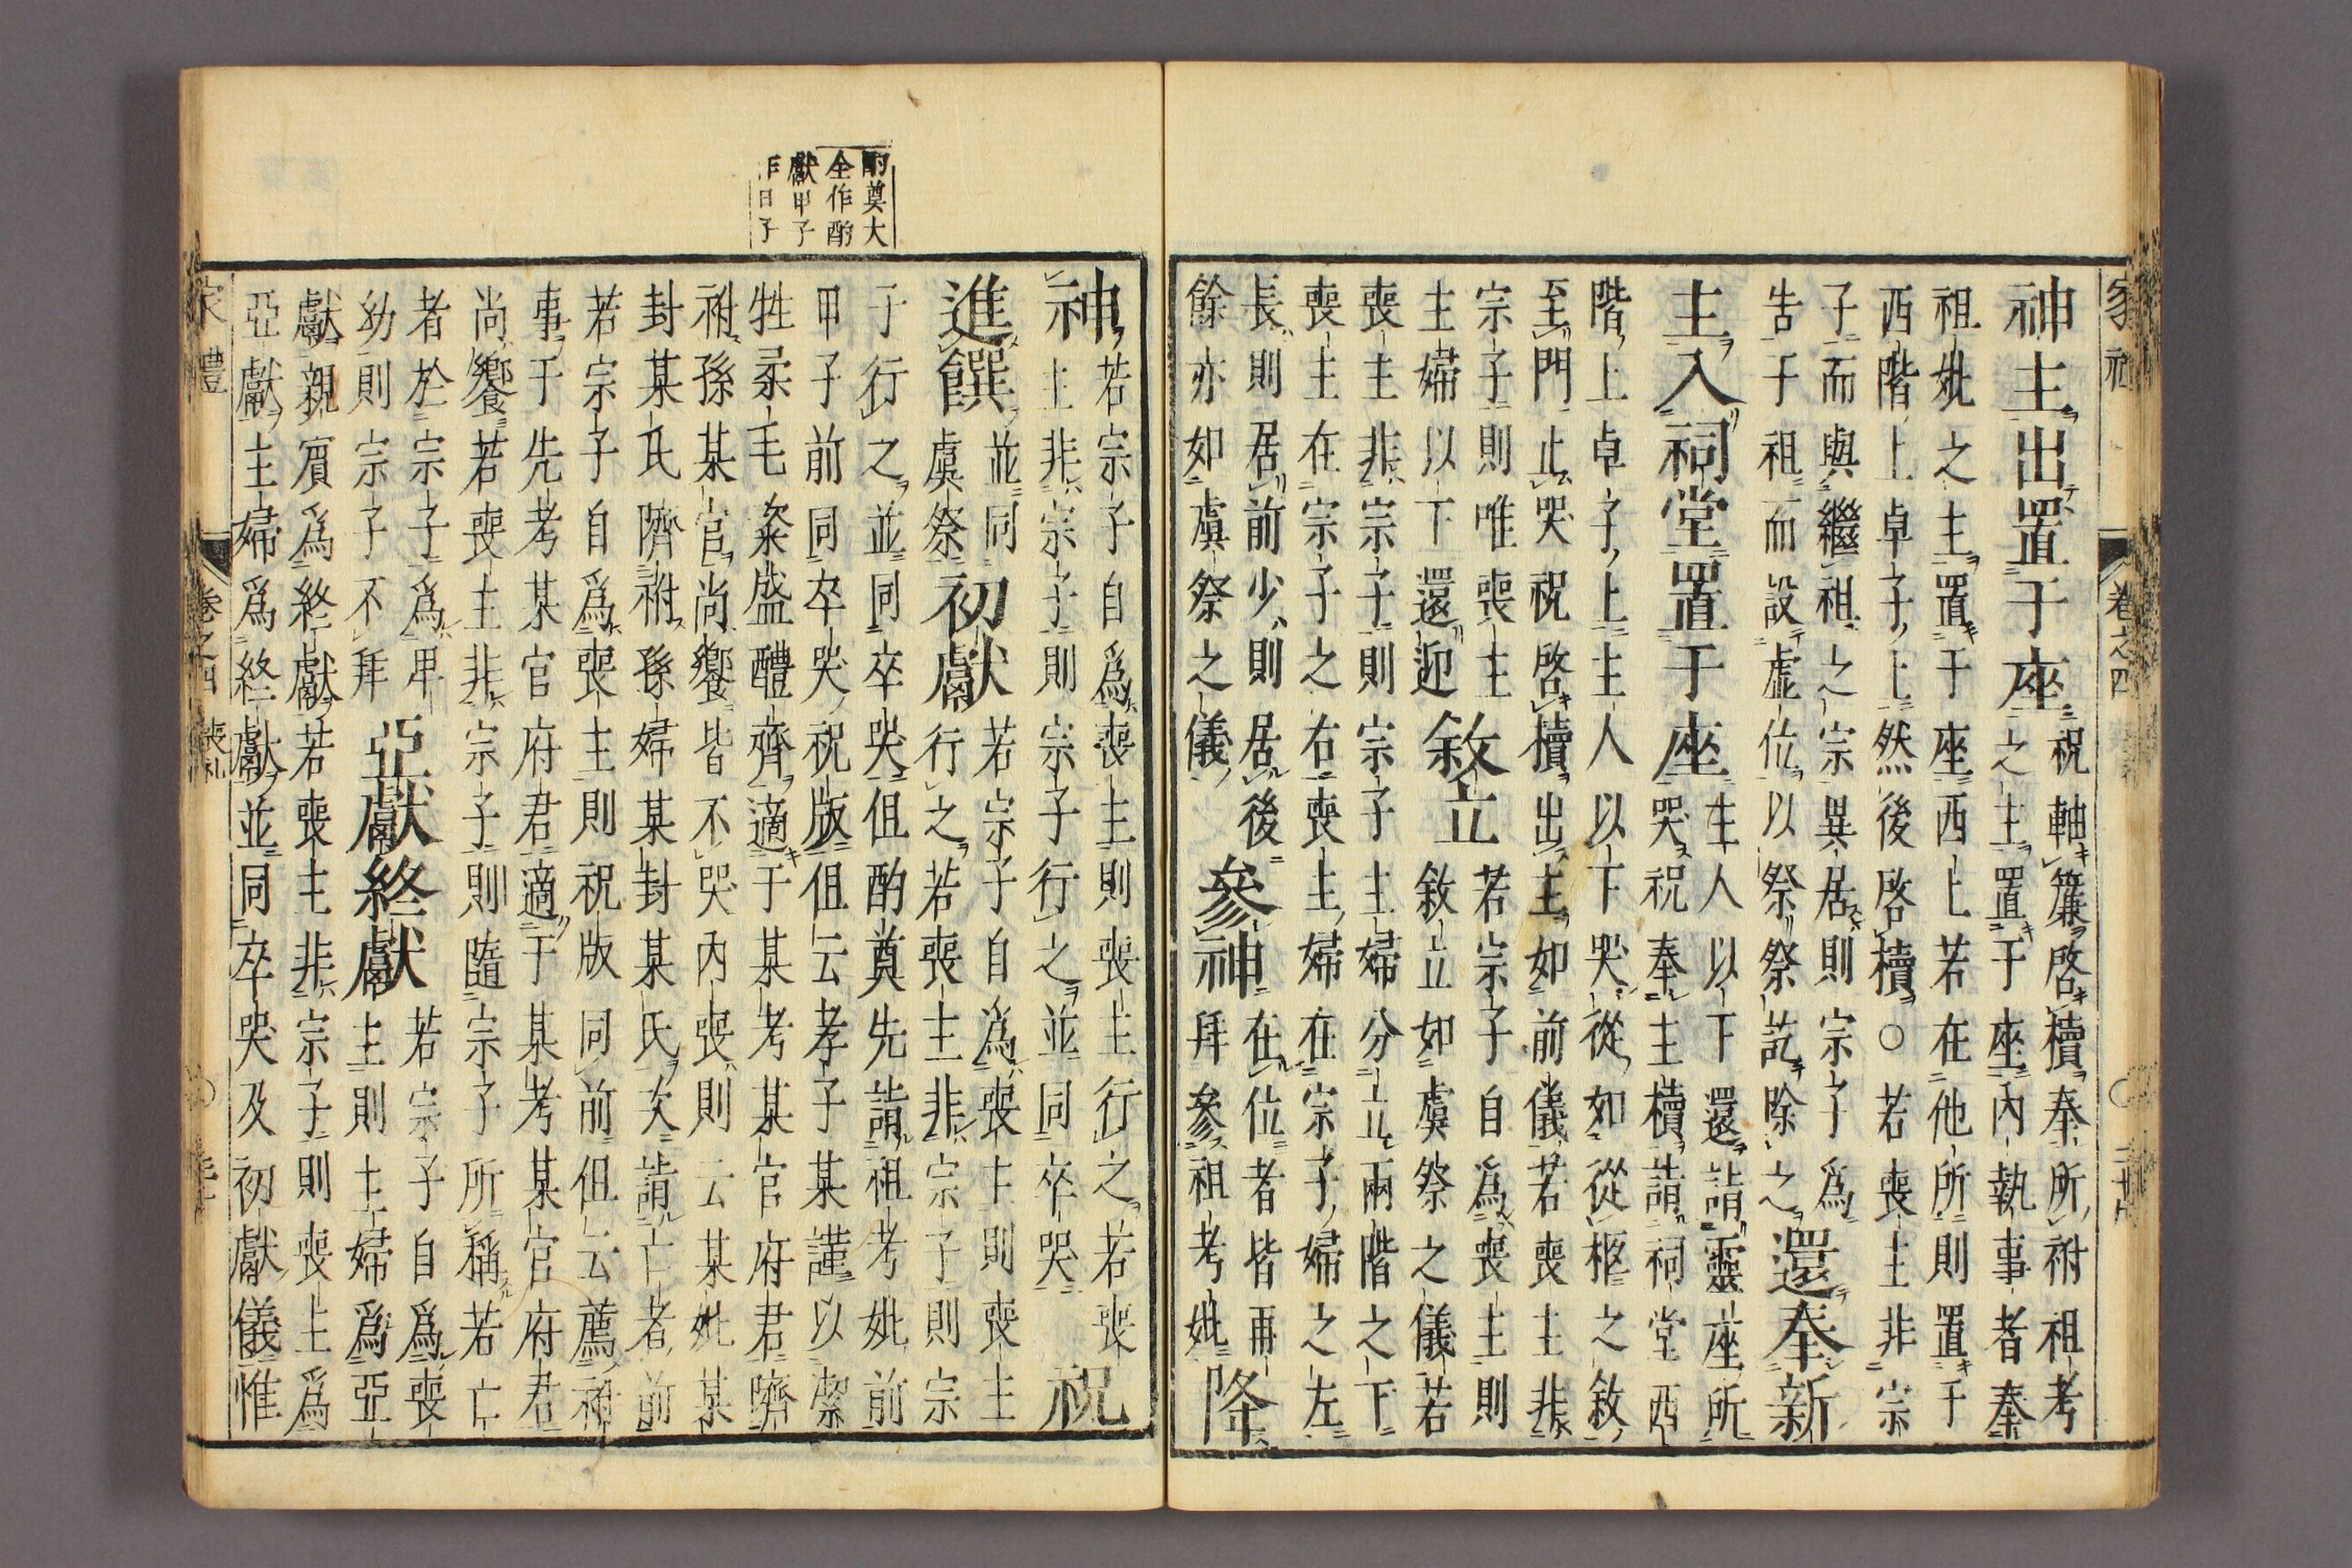 神主出置于座
祝軸簾啓櫝奉所祔祖考
之主置于座內執事者奉
祖妣之主置于座西上若在他所則置于
西階上卓子上然後啓櫝○若喪主非宗
子而與繼祖之宗異居則宗子爲
告于祖而設虛位以祭祭訖除之
還奉新
主入祠堂置于座
主人以下還詣靈座所
哭祝奉主櫝詣祠堂西
階上卓子上主人以下哭從如從柩之敘
至門止哭祝啓櫝出主如前儀若喪主非
宗子則唯喪主
主婦以下還迎
敘立
若宗子自爲喪主則
敘立如虞祭之儀若
喪主非宗子則宗子主婦分立兩階之下
喪主在宗子之右喪主婦在宗子婦之左
長則居前少則居後
餘亦如虞祭之儀
參神
在位者皆再
拜參祖考妣
降
酌奠大
全作酌
獻甲子
作日子
神
若宗子自爲喪主則喪主行之若喪
主非宗子則宗子行之並同卒哭
祝
進饌
並同
虞祭
初獻
若宗子自爲喪主則喪主
行之若喪主非宗子則宗
子行之並同卒哭但酌奠先詣祖考妣前
甲子前同卒哭祝版但云孝子某謹以潔
牲柔毛粢盛醴齊適于某考某官府君隮
祔孫某官尚饗皆不哭內喪則云某妣某
封某氏隮祔孫婦某封某氏次詣亡者前
若宗子自爲喪主則祝版同前但云薦祔
事于先考某官府君適于某考某官府君
尚饗若喪主非宗子則隨宗子所稱若亡
者於宗子爲卑
幼則宗子不拜
亞獻終獻
若宗子自爲喪
主則主婦爲亞
獻親賓爲終獻若喪主非宗子則喪主爲
亞獻主婦爲終獻並同卒哭及初獻儀惟
家禮 卷之四 喪礼